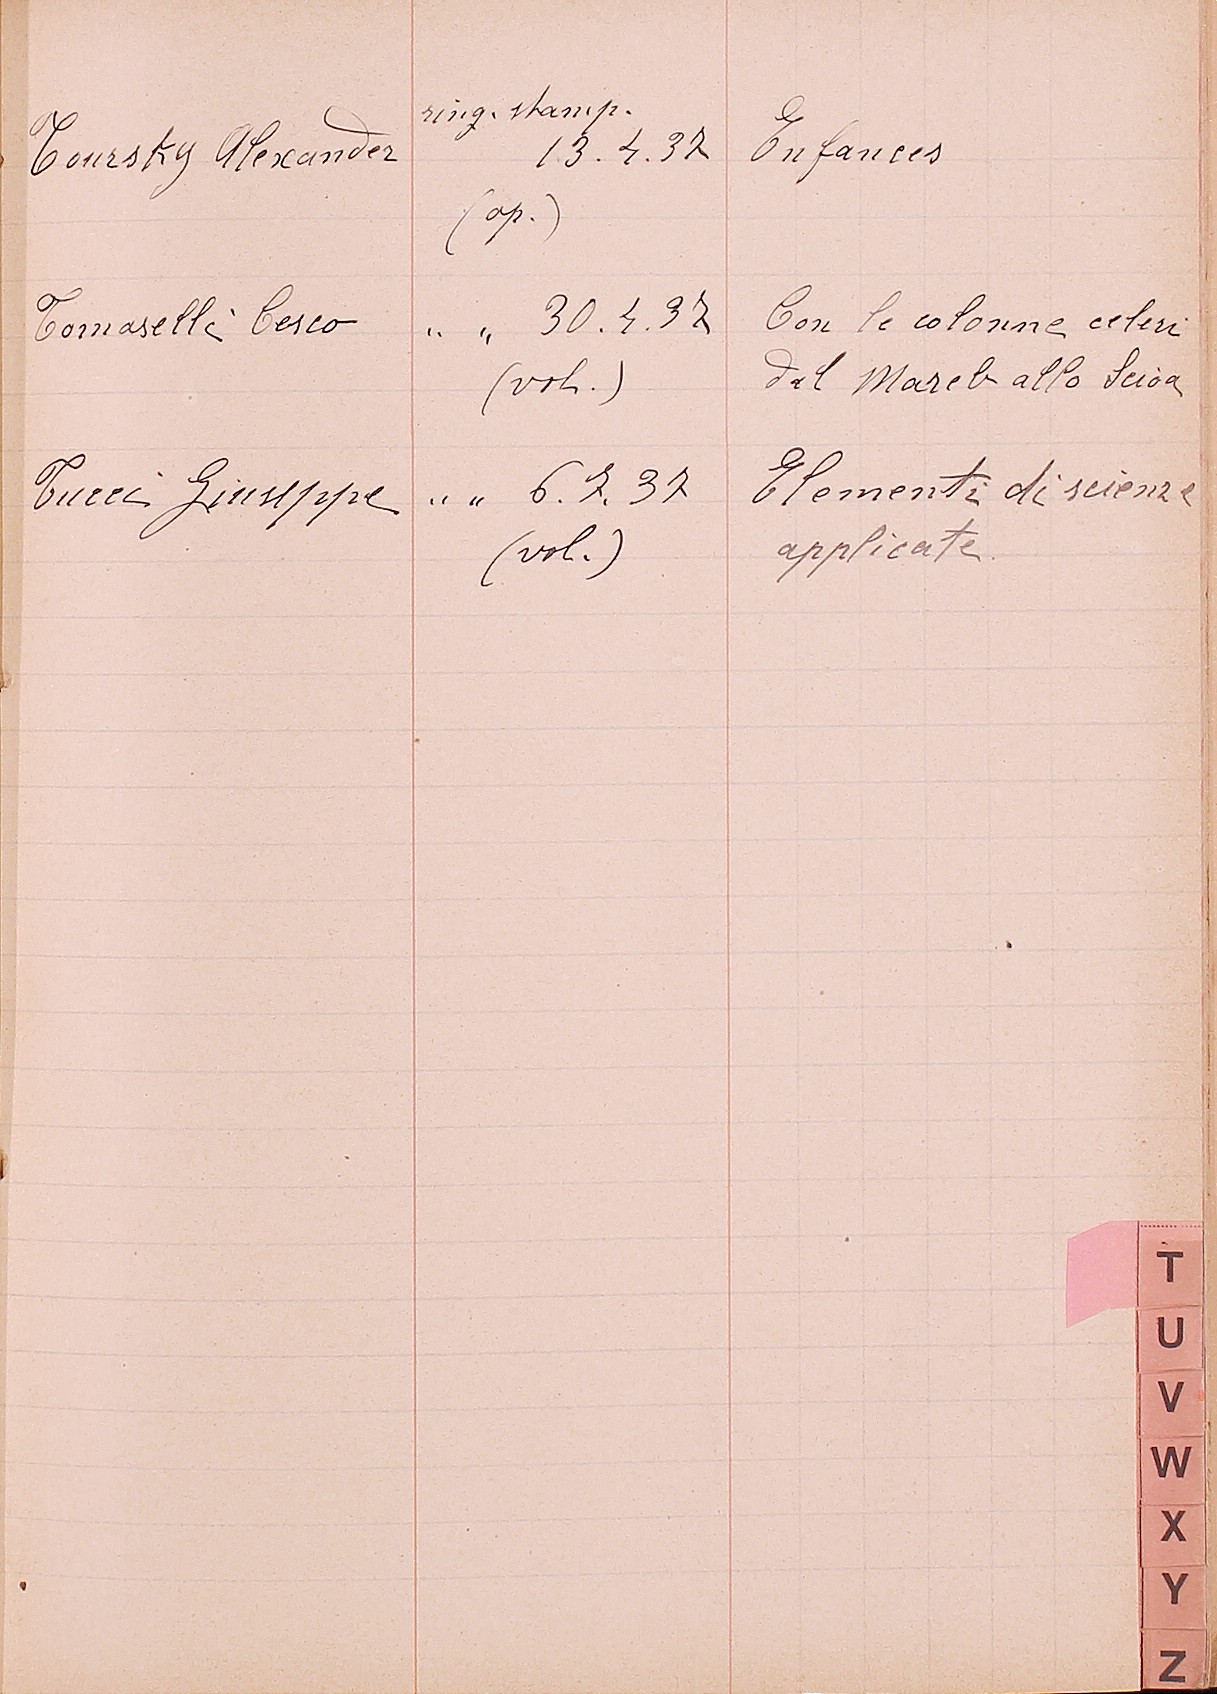 ring. stamp.
Toursky Alexander 13.4.37 Enfances
(op.)
Tomaselli Cesco " " 30.4.37 Con le colonne celeri
(vol.) dal Mareb allo Scioa
Tucci Giuseppe " " 6.7.37 Elementi di scienze
(vol.) applicate.
T
U
V
W
X
Y
Z